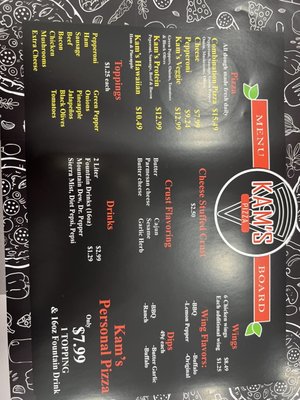 MENU
KAM'S
PIZZA
BOARD
Pizza
All dough made fresh daily
Combination Pizza $15.49
Cheese $7.99
Pepperoni $9.24
Kam's Veggie $12.99
Kam's Protein $12.99
Kam's Hawaiian $10.49
Toppings
$1.25 each
Pepperoni
Ham
Sausage
Beef
Bacon
Chicken
Mushrooms
Extra Cheese
Green Pepper
Onions
Pineapple
Jalapeños
Black Olives
Tomatoes
Cheese Stuffed Crust
$2.50
Crust Flavoring
Butter
Parmesan cheese
Butter cheese
Cajun
Sesame
Garlic Herb
Drinks
2 Liter $2.99
Fountain Drinks (16oz) $1.29
Mountain Dew, Dr. Pepper
Sierra Mist, Diet Pepsi, Pepsi
Wings
6 Chicken wings $8.49
Each additional wing $1.25
Wing Flavors:
-BBQ
-Lemon Pepper
-Buffalo
-Original
Dips
49¢ each
-BBQ
-Ranch
-Butter Garlic
-Buffalo
Kam's
Personal Pizza
Only
$7.99
1 TOPPING
& 16oz Fountain Drink